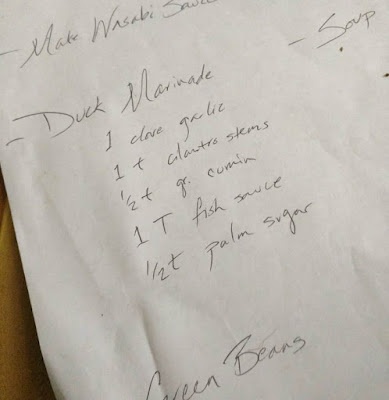 - Make Wasabi Sauce
- Soup
- Duck Marinade
1 clove garlic
1 t cilantro stems
1/2 t gr. cumin
1 T fish sauce
1/2 t palm sugar
Green Beans